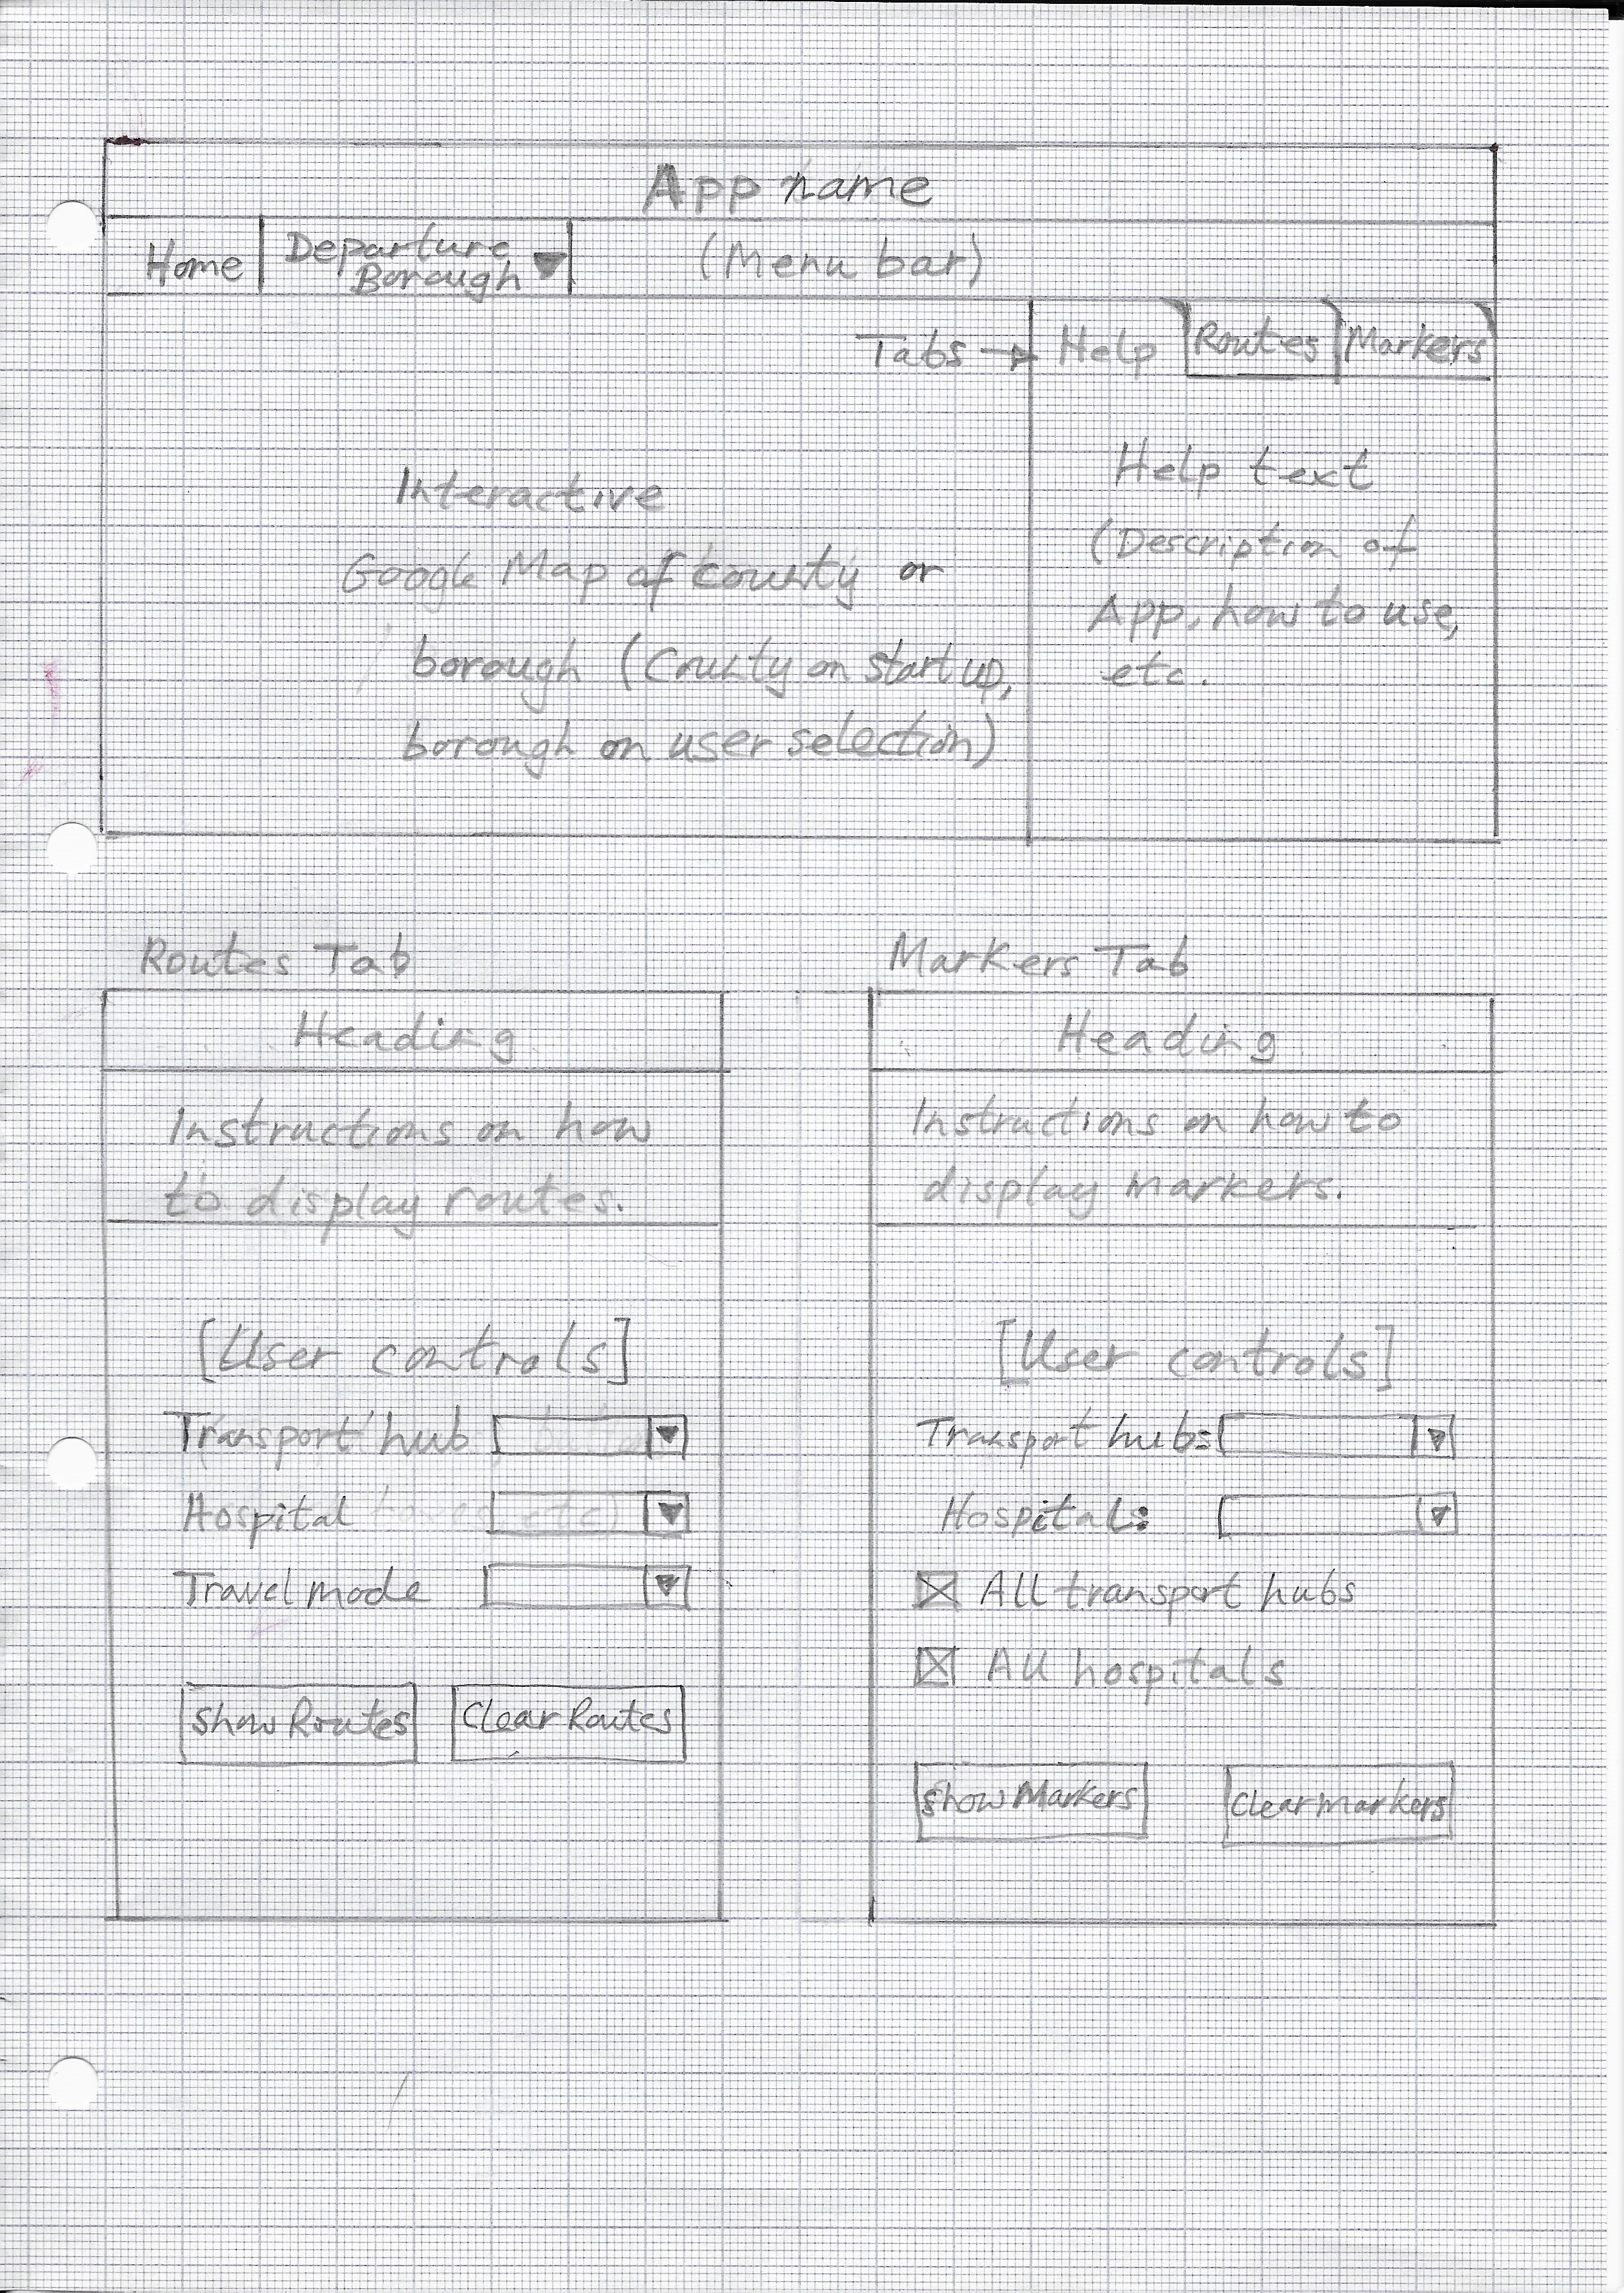 App name
Home
Departure
Borough
(Menu bar)
Tabs
Help
Routes
Markers
Interactive
Google Map of county or
borough (County on start up,
borough on user selection)
Help text
(Description of
App, how to use,
etc.
Routes Tab
Heading
Instructions on how
to display routes.
[User controls]
Transport hub
Hospital
Travel mode
Show Routes
Clear Routes
Markers Tab
Heading
Instructions on how to
display markers.
[User controls]
Transport hubs:
Hospitals:
All transport hubs
All hospitals
Show Markers
Clear markers